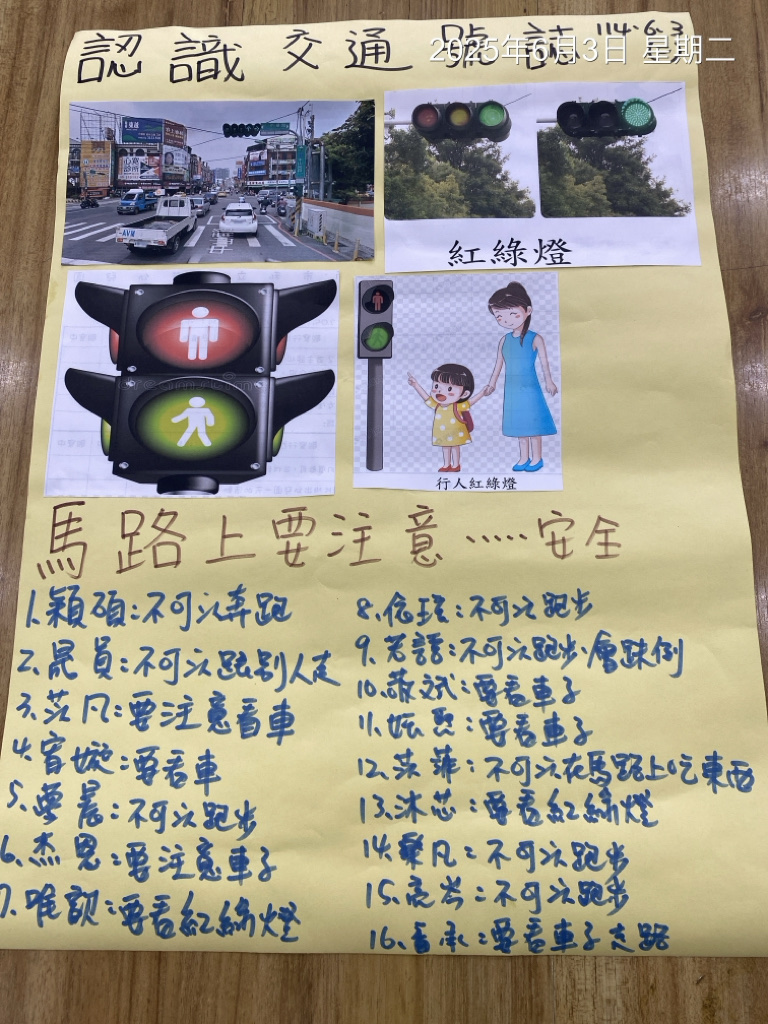 認識交通號誌 114.6.3
2025年6月3日 星期二
紅綠燈
行人紅綠燈
馬路上要注意.....安全
1.穎碩:不可以奔跑
2.晸員:不可以跟別人走
3.苡凡:要注意看車
4.宥璇:要看車
5. 晨:不可以跑步
6.杰恩:要注意車子
7.唯歆:要看紅綠燈
8.:不可以跑步
9.若語:不可以跑步會跌倒
10.敬斌:要看車子
11.:要看車子
12.苡菲:不可以在馬路上吃東西
13.沐芯:要看紅綠燈
14.凡:不可以跑步
15.亮岑:不可以跑步
16.承:要看車子走路